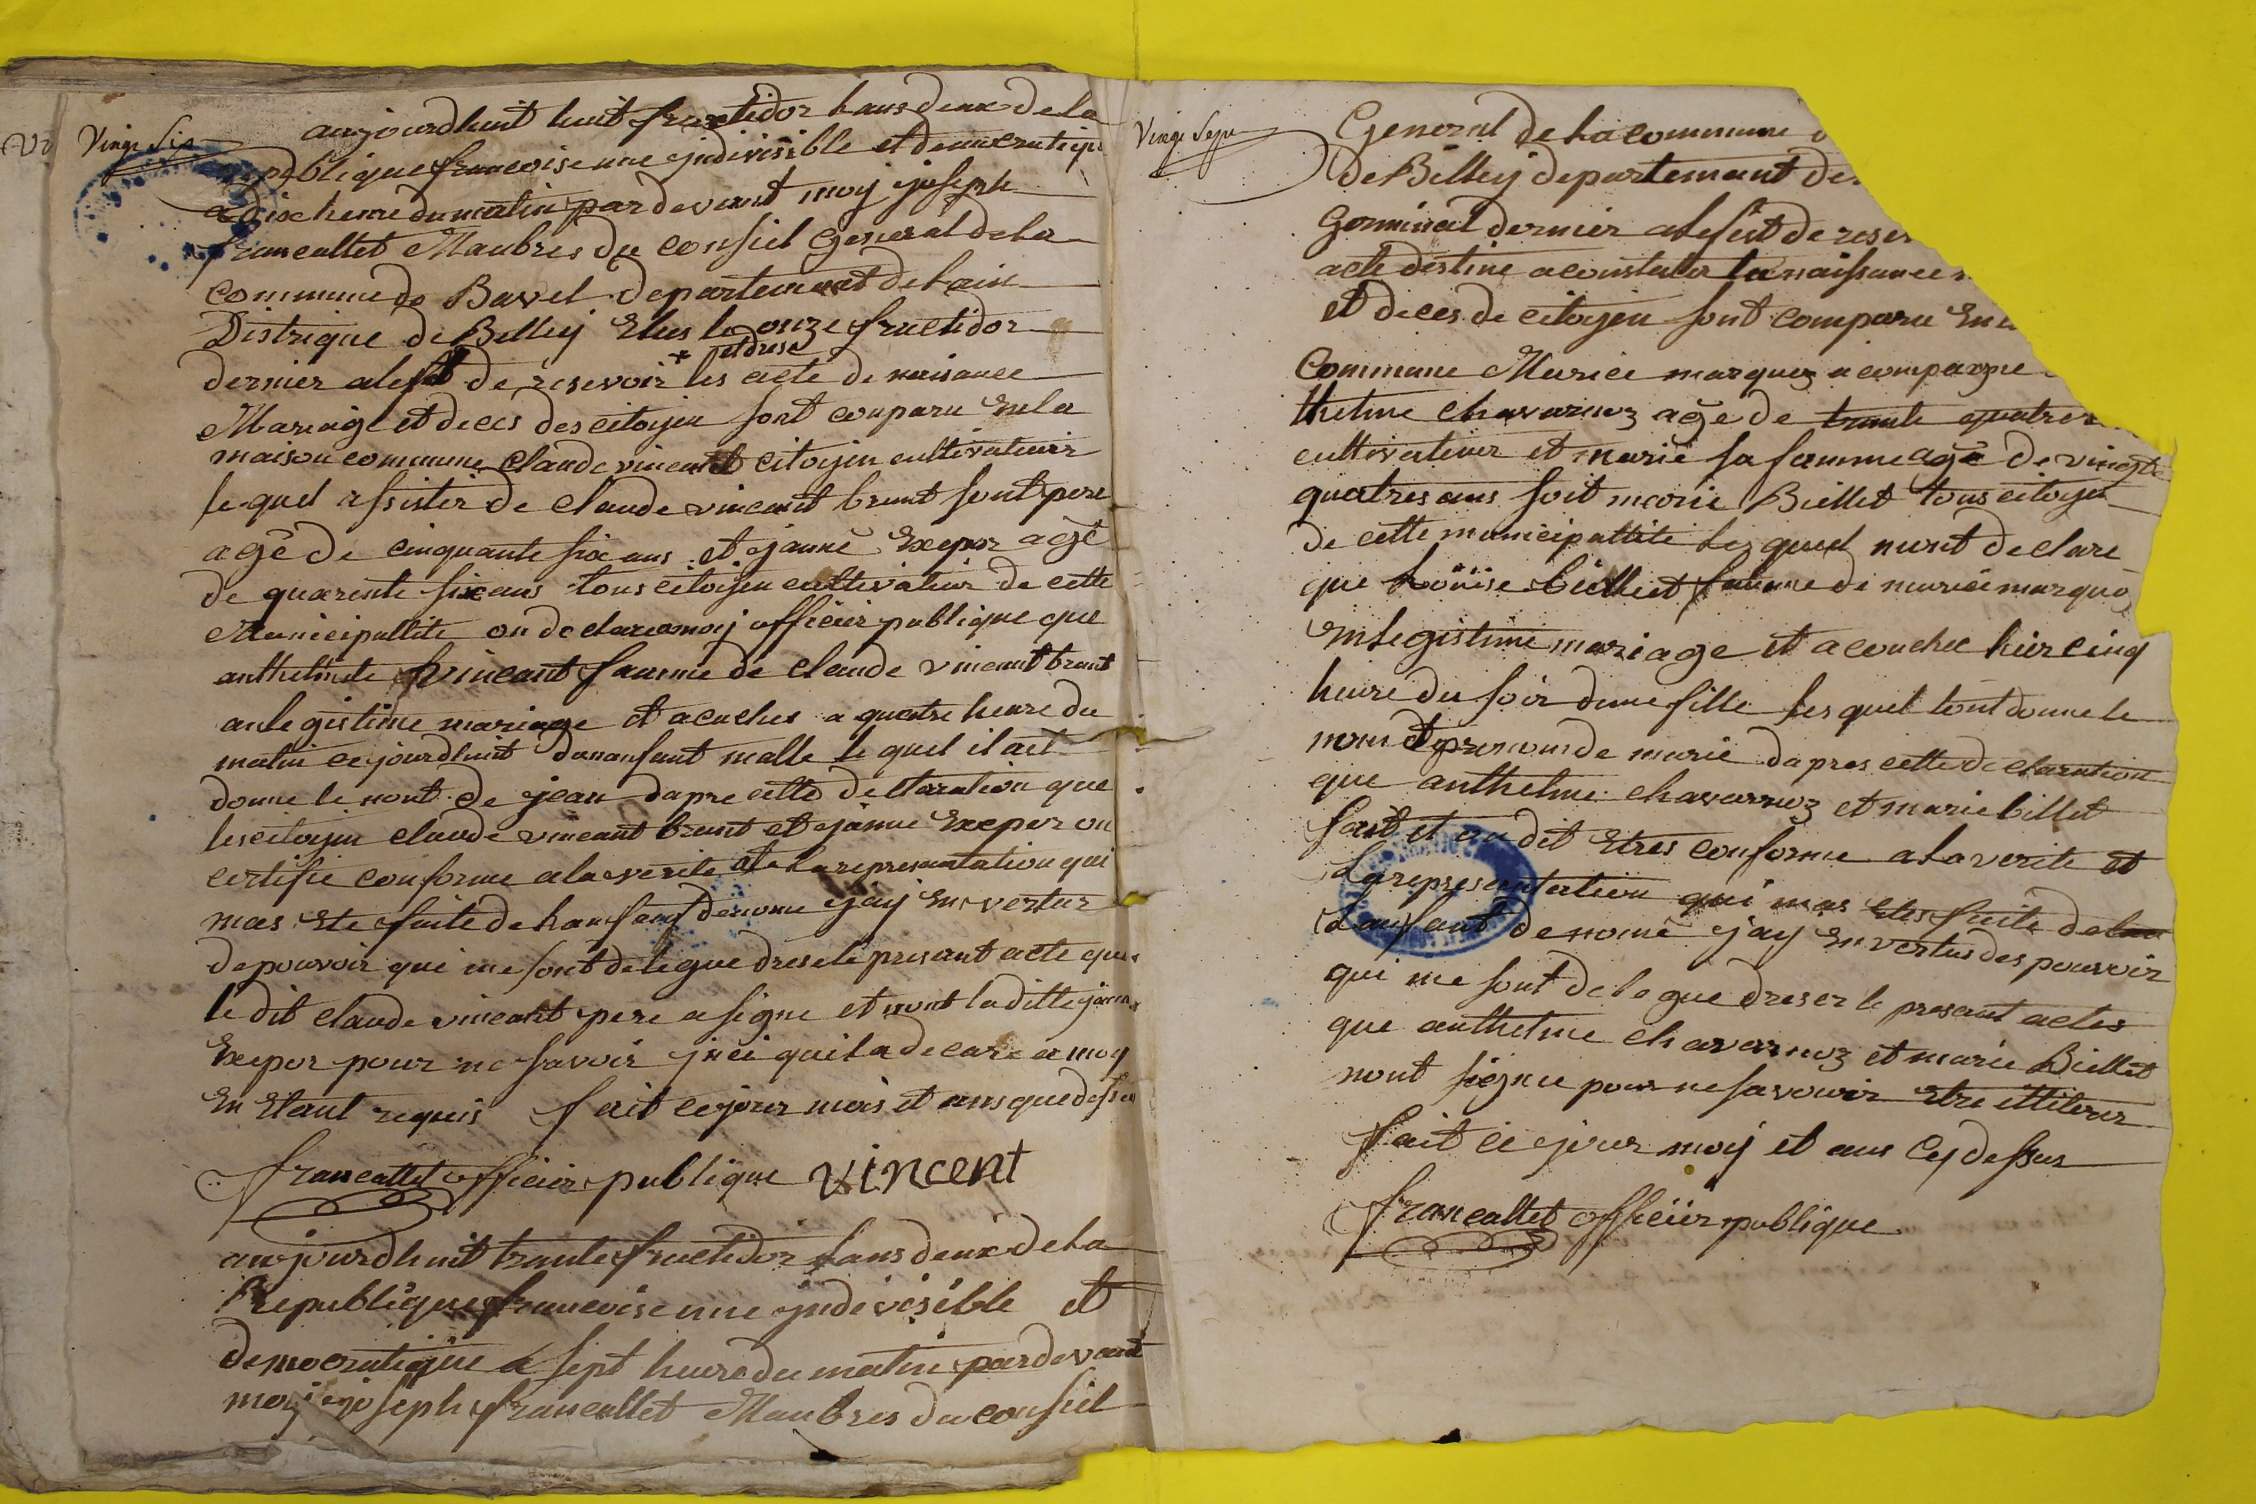 Vingt Six
aujourdhuit huit fructidor lans deux de la
republique francoise une jndivisible et democratique
a dix heure du matin par devant moy joseph
francallet Manbres du consiel general de la
commune de Bavel departement de lain
Distrique de Belley Elus le onze fructidor
et dresé
dernier a lefet de resevoir * les acte de naisance
Mariage et deces des citoyen sont conparu En la
maison commune claude vincent citoyen cultivateur
le quel assister de claude vincent brunt sont pere
agé de cinquante six ans et janne Exepor agé
de quarente six ans tous citoyen cultivateur de cette
Municipallite on declare a moy officier publique que
anthelmete vincant famme de claude vincent brunt
an legistime mariage et acuches a quatre heure du
matin ce jourdhuit dun anfant malle le quel il ait
donne le nont de jean dapre cette declaration que
les citoyen claude vincant brunt et janne Exepor on
certifie conforme a la verite et la representation qui
mas Ete faite de lanfant denome jay En vertus
de pouvoir qui me sont delegue dresé le present acte que
le dit claude vincent pere a signe et nont la ditte janne
Exepor pour ne savoir jnci quil a decare a moy
En Etant requis fait ce jour mois et ans que dessu
francallet officier publique vincent
aujourdhuit trante fructidor lans deux de la
Republique francoise une jndivisible et
democratique a sept heure du matin par devant
moy joseph francallet Manbres du consiel
Vingt Sept
General de la commune
de Belley departemant de
Germinal dernier a lefet de reser
acte destine a constater la naissance
et deces de citoyen sont comparu En
Commune Muricé marquoz acompagne
thelme chavarnoz agé de trante quatre
cultivateur et marie sa famme agé de vingt
quatres ans soit marie Biellet tous citoyen
de cette municipallité les quel munt declare
que Loüise biellet famme de muricé marquoz
En legistime mariage et acouchee hier cinq
heure du soir dune fille les quel lont donne le
nom et prenom de marie dapres cette declaration
que anthelme chavarnoz et marie billet
font et on dit Etres conforme a la verite et
La representation qui mas Etes faite de lan
Lanfant denomé jay En vertus des pouvoir
qui me sont delegue dreser le presant actes
que anthelme chavarnoz et marie Biellet
nont signee pour ne savouir Etre ittiterer
fait ce jour moy et ans Cy dessus
francallet officiër publique